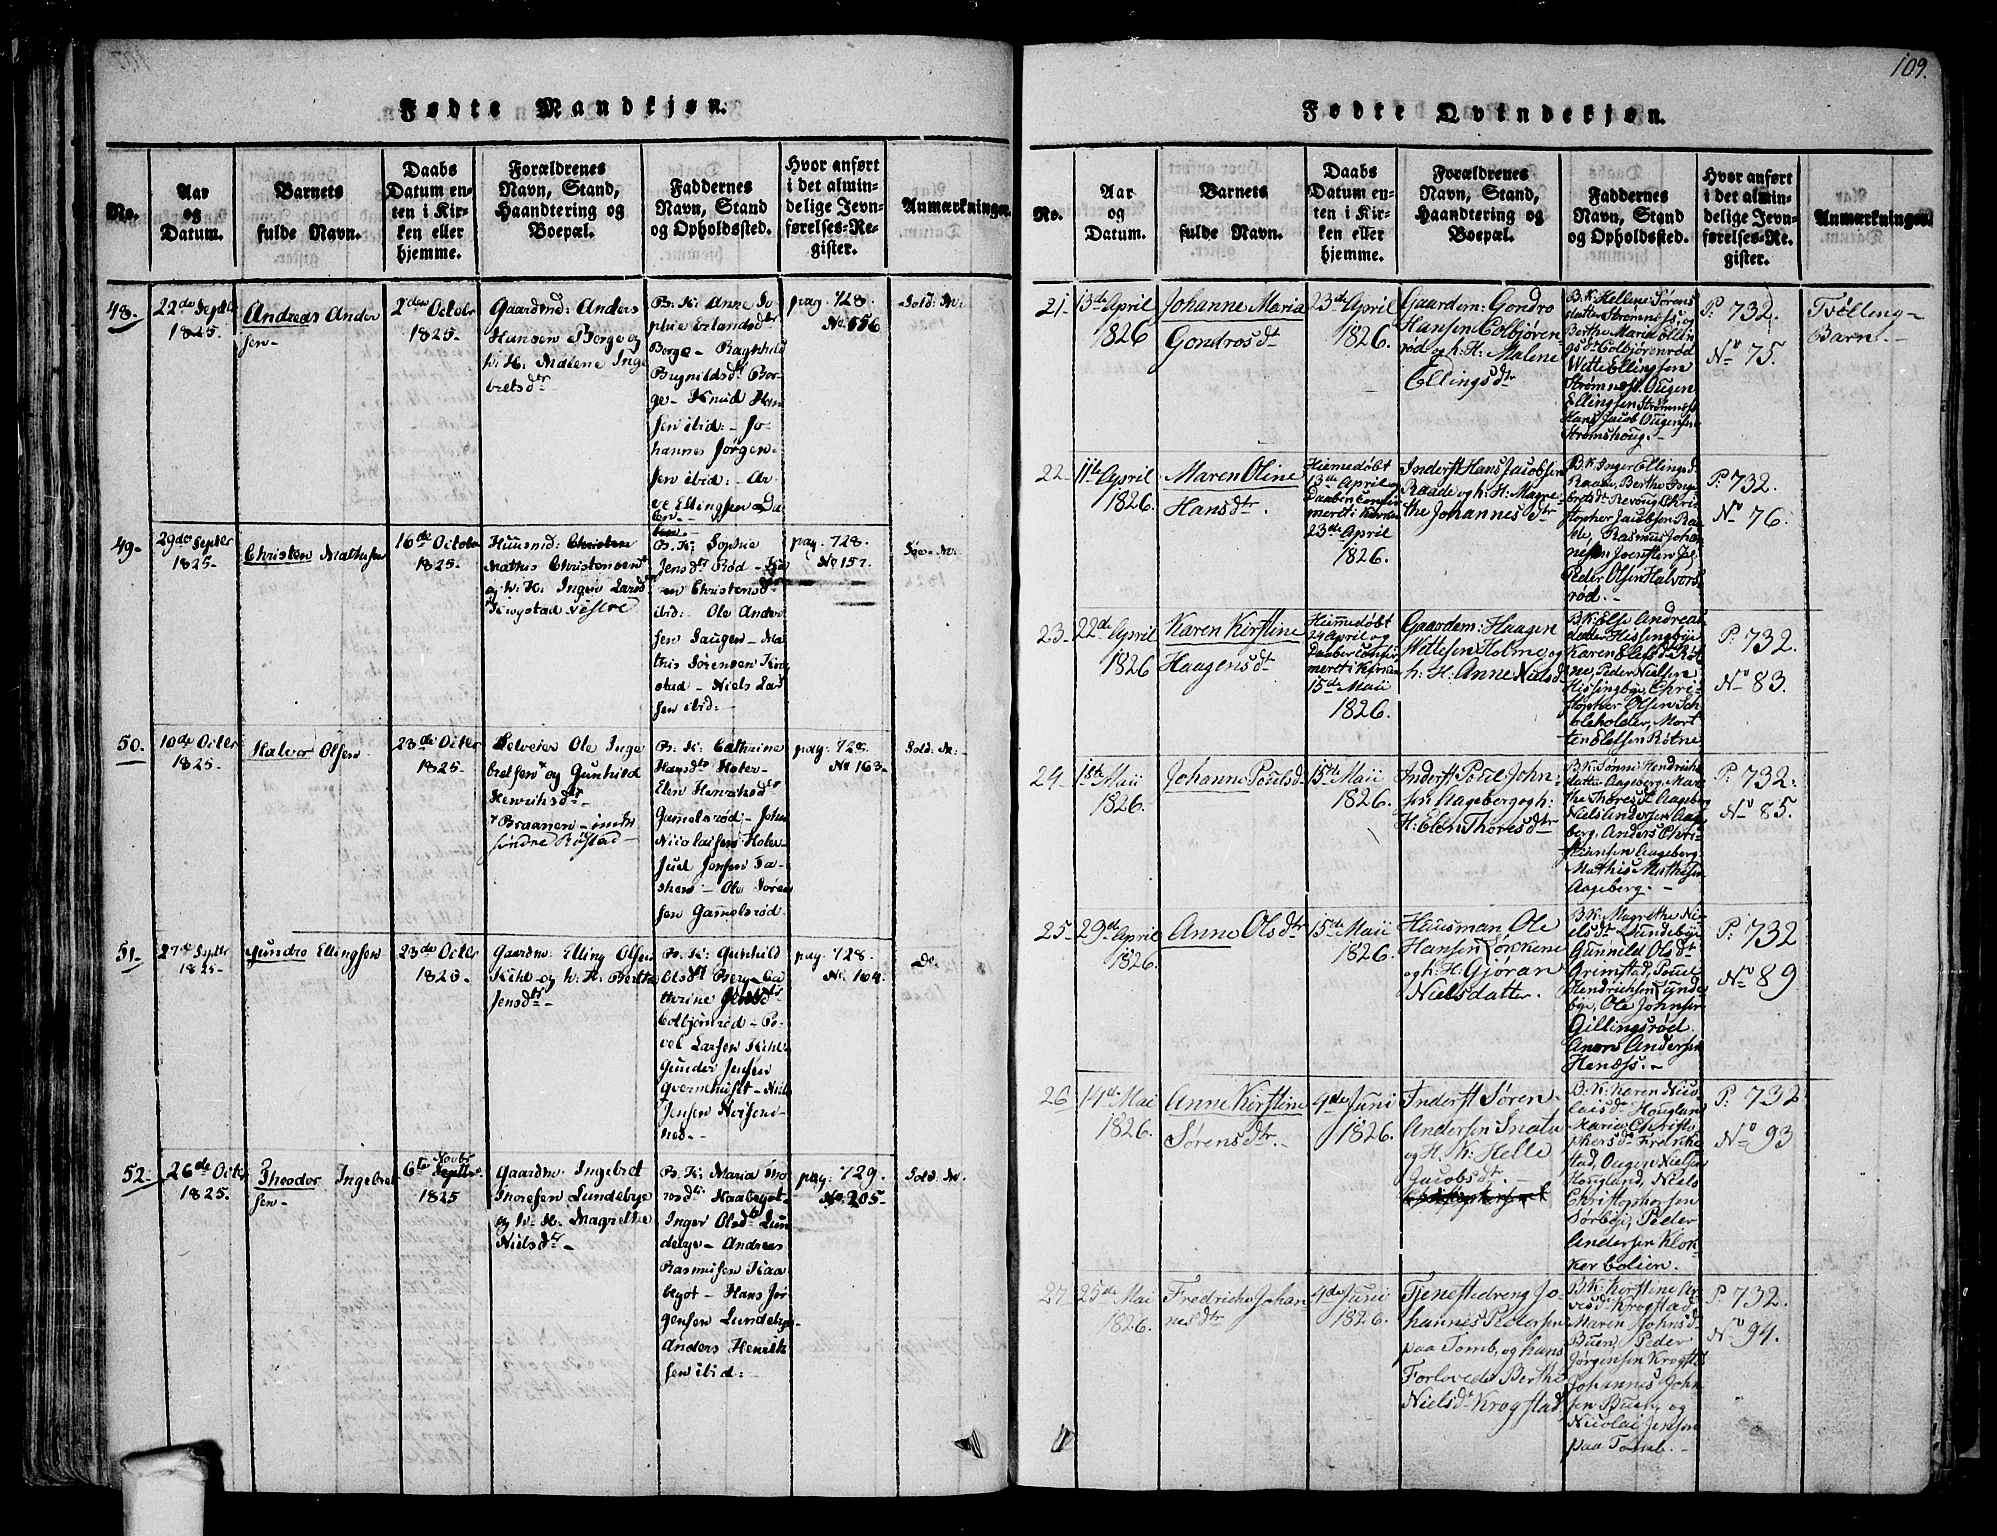 109.
Fødte Mandkjøn.
No.
Aar
og
Datum.
Barnets
fulde Navn.
Daabs
Datum en-
ten i Kir-
ken eller
hjemme.
Forældrenes
Navn, Stand,
Haandtering og
Boepæl.
Faddernes
Navn, Stand
og Opholdssted.
Hvor anført
i det almin-
delige Jevn-
førelses-Re-
gister.
Anmærkninger.
48.
22de Septbr
1825.
Andreas Ander
sen
2den October
1825.
Gaardmd: Anders
Hansen Borge og
h: H. Malene Inge
bretsdtr
B. K: Anne So-
phie Erlandsdtr
Borge – Ragnhild
Bor-
ge – Knud Han
sen ibid: – Jo-
hannes Jørgen-
sen ibid: – Ar-
ve Ellingsen
pag. 728.
No 156
Sold: N:
49.
29de Septbr
1825.
Christen Mathisen
16de October
1825.
Huusmd: Christen
Mathis Christensen
og h: H. Inger Larsdtr
Krogstad vestre
B. K: Sophie
Jensdtr Rød – Ka
ren Christensdtr
ibid: Ole Ander
sen Haugen – Ma
this Sørensen Krog
stad – Niels Lar
sen ibid:
pag. 728.
No 157.
Søe-N:
50.
10de Octbr
1825.
Halvor Olsen
23de Octbr
1825.
Selveier Ole Inge
bretsen og Gunhild
Henrichsdtr
Braanen – indre
søndre Røstad
B. K: Cathrine
Hansdtr Holer
Elen Henrichsdtr
Gamelsrød – John
Nicolaisen Holer
Juel Jonsen
– Ole Søren
sen Gamelsrød
pag. 728.
No 163.
Sold: N:
51.
27de Septbr
1825.
Gundro Ellingsen
23de Octbr
1825.
Gaardm: Elling Olsen
Kihl og h: H. Berthe
Jensdtr
B. K: Gunhild
Olsdtr Berg – Ca
thrine Jensdtr
Colbjørnrød – Po-
vel Larsen Kihl
Gunder Jensen
Qvernhuset – Niels
Jensen
pag. 728.
No 164.
Do.
52.
26de Octbr
1825.
Theodor Ingebret
sen
6te Novbr
1825
Gaardm: Ingebret
Thoresen Lundebye
og h: H. Magrethe
Nielsdtr
B. K: Maria Tho
resdtr Kaabegot
Inger Olsdtr Lun
debye – Andreas
Rasmusen Kaa
begot – Hans Jør
gensen Lundebye
Anders Henrik
sen ibid:
pag. 729.
No 205.
Sold: N:
Fødte Qvindekjøn.
No.
Aar
og
Datum.
Barnets
fulde Navn.
Daabs
Datum en-
ten i Kir-
ken eller
hjemme.
Forældrenes
Navn, Stand,
Haandtering og
Boepæl.
Faddernes
Navn, Stand
og Opholdssted.
Hvor anført
i det almin-
delige Jevn-
førelses-Re-
gister.
Anmærkninger.
21.
13de April
1826
Johanne Maria
Gondrosdt
23de April
1826.
Gaardem: Gondro
Hansen Colbjøren
rød og h: H: Malene
Ellingsdtr
B. K. Hellene Sørens
datter Strømnes og
Berthe Maria Ellin
gsdtr Colbjørenrød
Wette Ellingsen
Strømnes. Ougen
Ellingsen Strømnes
Hans Jacob Ougensen
Strømshoug. –
P: 732.
No 75.
Tvølling-
Barn. –
22.
11te April
1826.
Maren Oline
Hansdtr.
Hiemedøbt
13de April og
Daaben Confir
meret i Kirken
23de April
1826.
Inderst Hans Jacobsen
Raade og h: H: Magre
the Johannesdtr
B. K. Inger Ellingsd
Raade, Berthe Inge
bretsdt Revoug, Chri
stopher Jacobsen Raa
de, Rasmus Johan
nesen
Peder Olsen Halvors
rød. –
P: 732.
No 76.
23.
22de April
1826
Karen Kirstine
Haagensdt
Hiemedøbt
24 April og
Daaben Confir
meret i Kirken
15de Maii
1826.
Gaardem: Haagen
Wettesen Holme og
h: H: Anne Nielsd
B. K. Else Andreas
datter Hissingbye
Karen Elefsdtr Røt
ne, Peder Nielsen
Hissingbye, Chri-
stopher Olsen
Mort
ten Elefsen Røtne
P: 732.
No 83.
24.
1ste Maii
1826.
Johanne Poulsd
15de Maii
1826.
Inderst Poul John-
sen Aageberg og h:
H: Elen Thoresdtr
B. K. Sønne Hendrichs
datter Aageberg, Mar
the Thoresdt Aageberg
Niels Andersen Aage
berg, Anders Chri-
stiansen Aageberg
Mathis Mathisen
Aageberg. –
P: 732.
No 85.
25.
29de April
1826.
Anne Olsdtr
15de Maii
1826.
Huusman Ole
Hansen Lørkene
og h: H: Gjøran
Nielsdatter.
B. K. Magrethe Ni-
elsdt Lundebye
Gunnild Olsdt
Grimstad, Poul
Hendrichsen Lynde
bye, Ole Johnsen
Gillingsrød
Aners Andersen
Henæss. –
P: 732
No 89
26
14de Mai
1826.
Anne Kirstine
Sørensdtr.
4de Juni
1826.
Inderst Søren
Andersen
og H. K. Helle
Jacobsdtr.
B. K. Karen Nico
laisdt Hougland
Maria Christo
phersdt Fredrikke
stad, Ougen Nielsen
Hougland, Niels
Christophersen
Sørbye, Peder
Andersen Klok-
kerbolien.
P: 732
No 93
27.
25de Mai
1826.
Fredricke Johan
nesdtr
4de Junii
1826.
Tjenestedreng Jo-
hannes Pedersen
paa Tomb, og hans
Forlovede Berthe
Nielsdt Krogstad
B. K. Kirstine Ar
vesdt Krogstad
Maren Johnsd
Buer, Peder
Jørgensen Krogstad
Johannes John
sen Buer, og
Nicolai Jensen
paa Tomb. –
P: 732.
No 94.